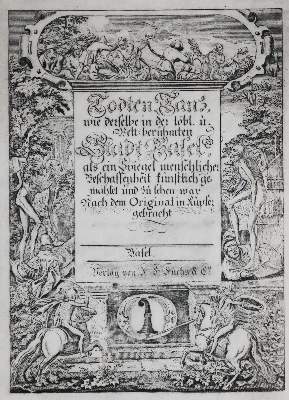 Todten Tanz,
wie derselbe in der löbl. u.
Welt-berühmten
Stadt Basel
als ein Spiegel menschlicher
Beschaffenheit künstlich ge-
mahlet und zu sehen war
Nach dem Original in Kupfer
gebracht
Basel
Verlag von
Fuchs & Co